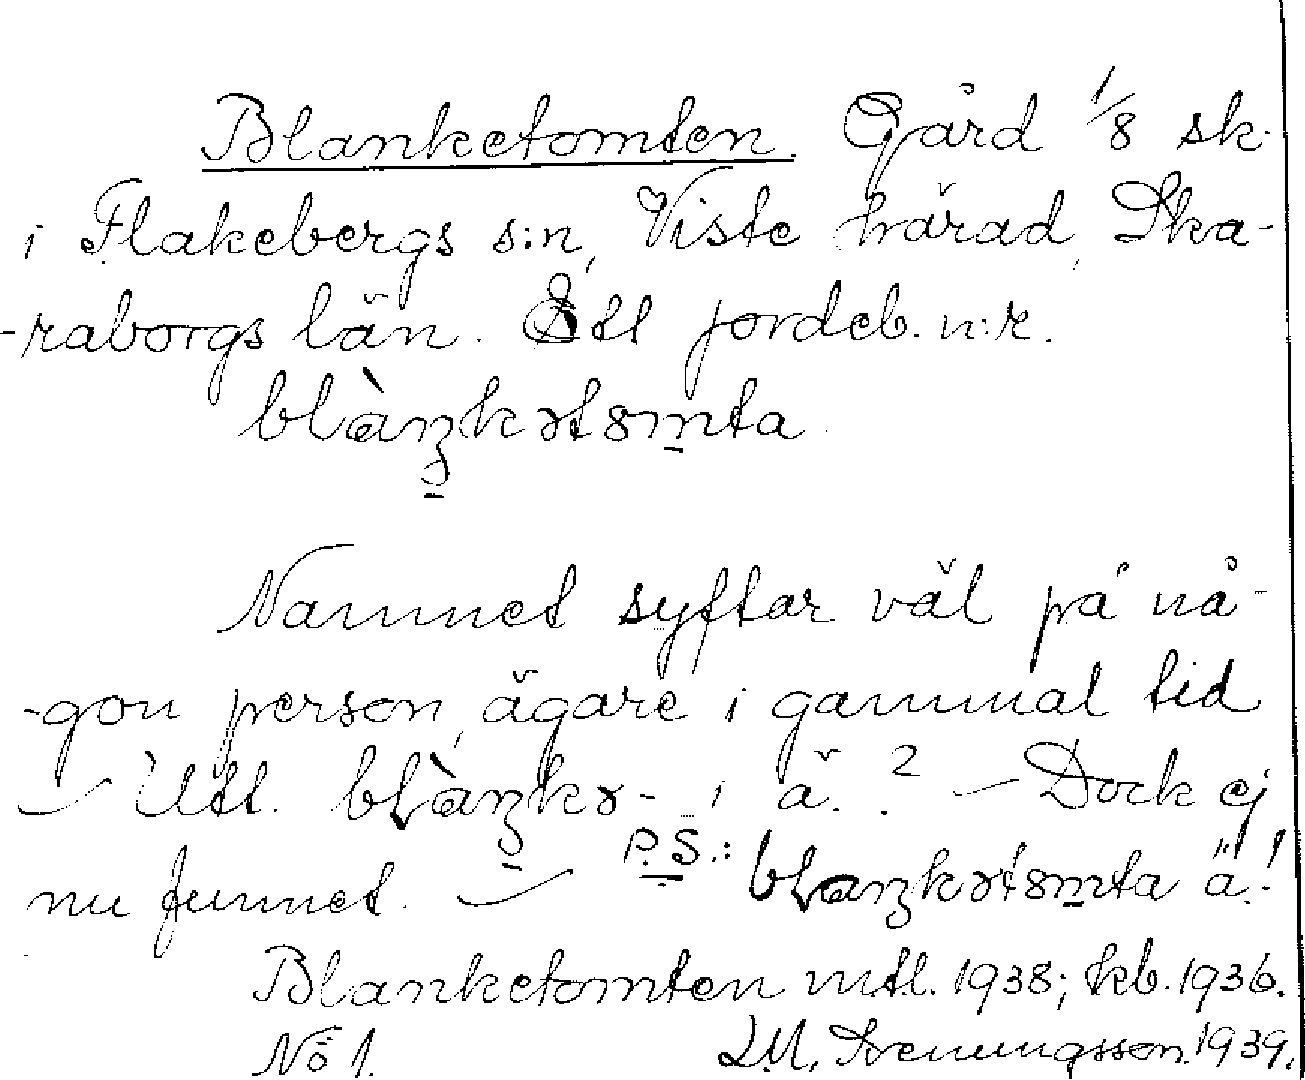 Blanketomten. Gård 1/8 sk.
i Flakebergs s:n, Viste härad, Ska-
-raborgs län. Ett jordeb. n:r.
blàŋkətȣmta
Namnet syftar väl på nå-
-gon person, ägare i gammal tid
– Utt. blàŋkə- i ä.? – Dock ej
nu funnet. – P.S.: blaŋkətȣmta ä.!
Blanketomten mtl. 1938; kb. 1936.
No 1. Svenungsson 1939.